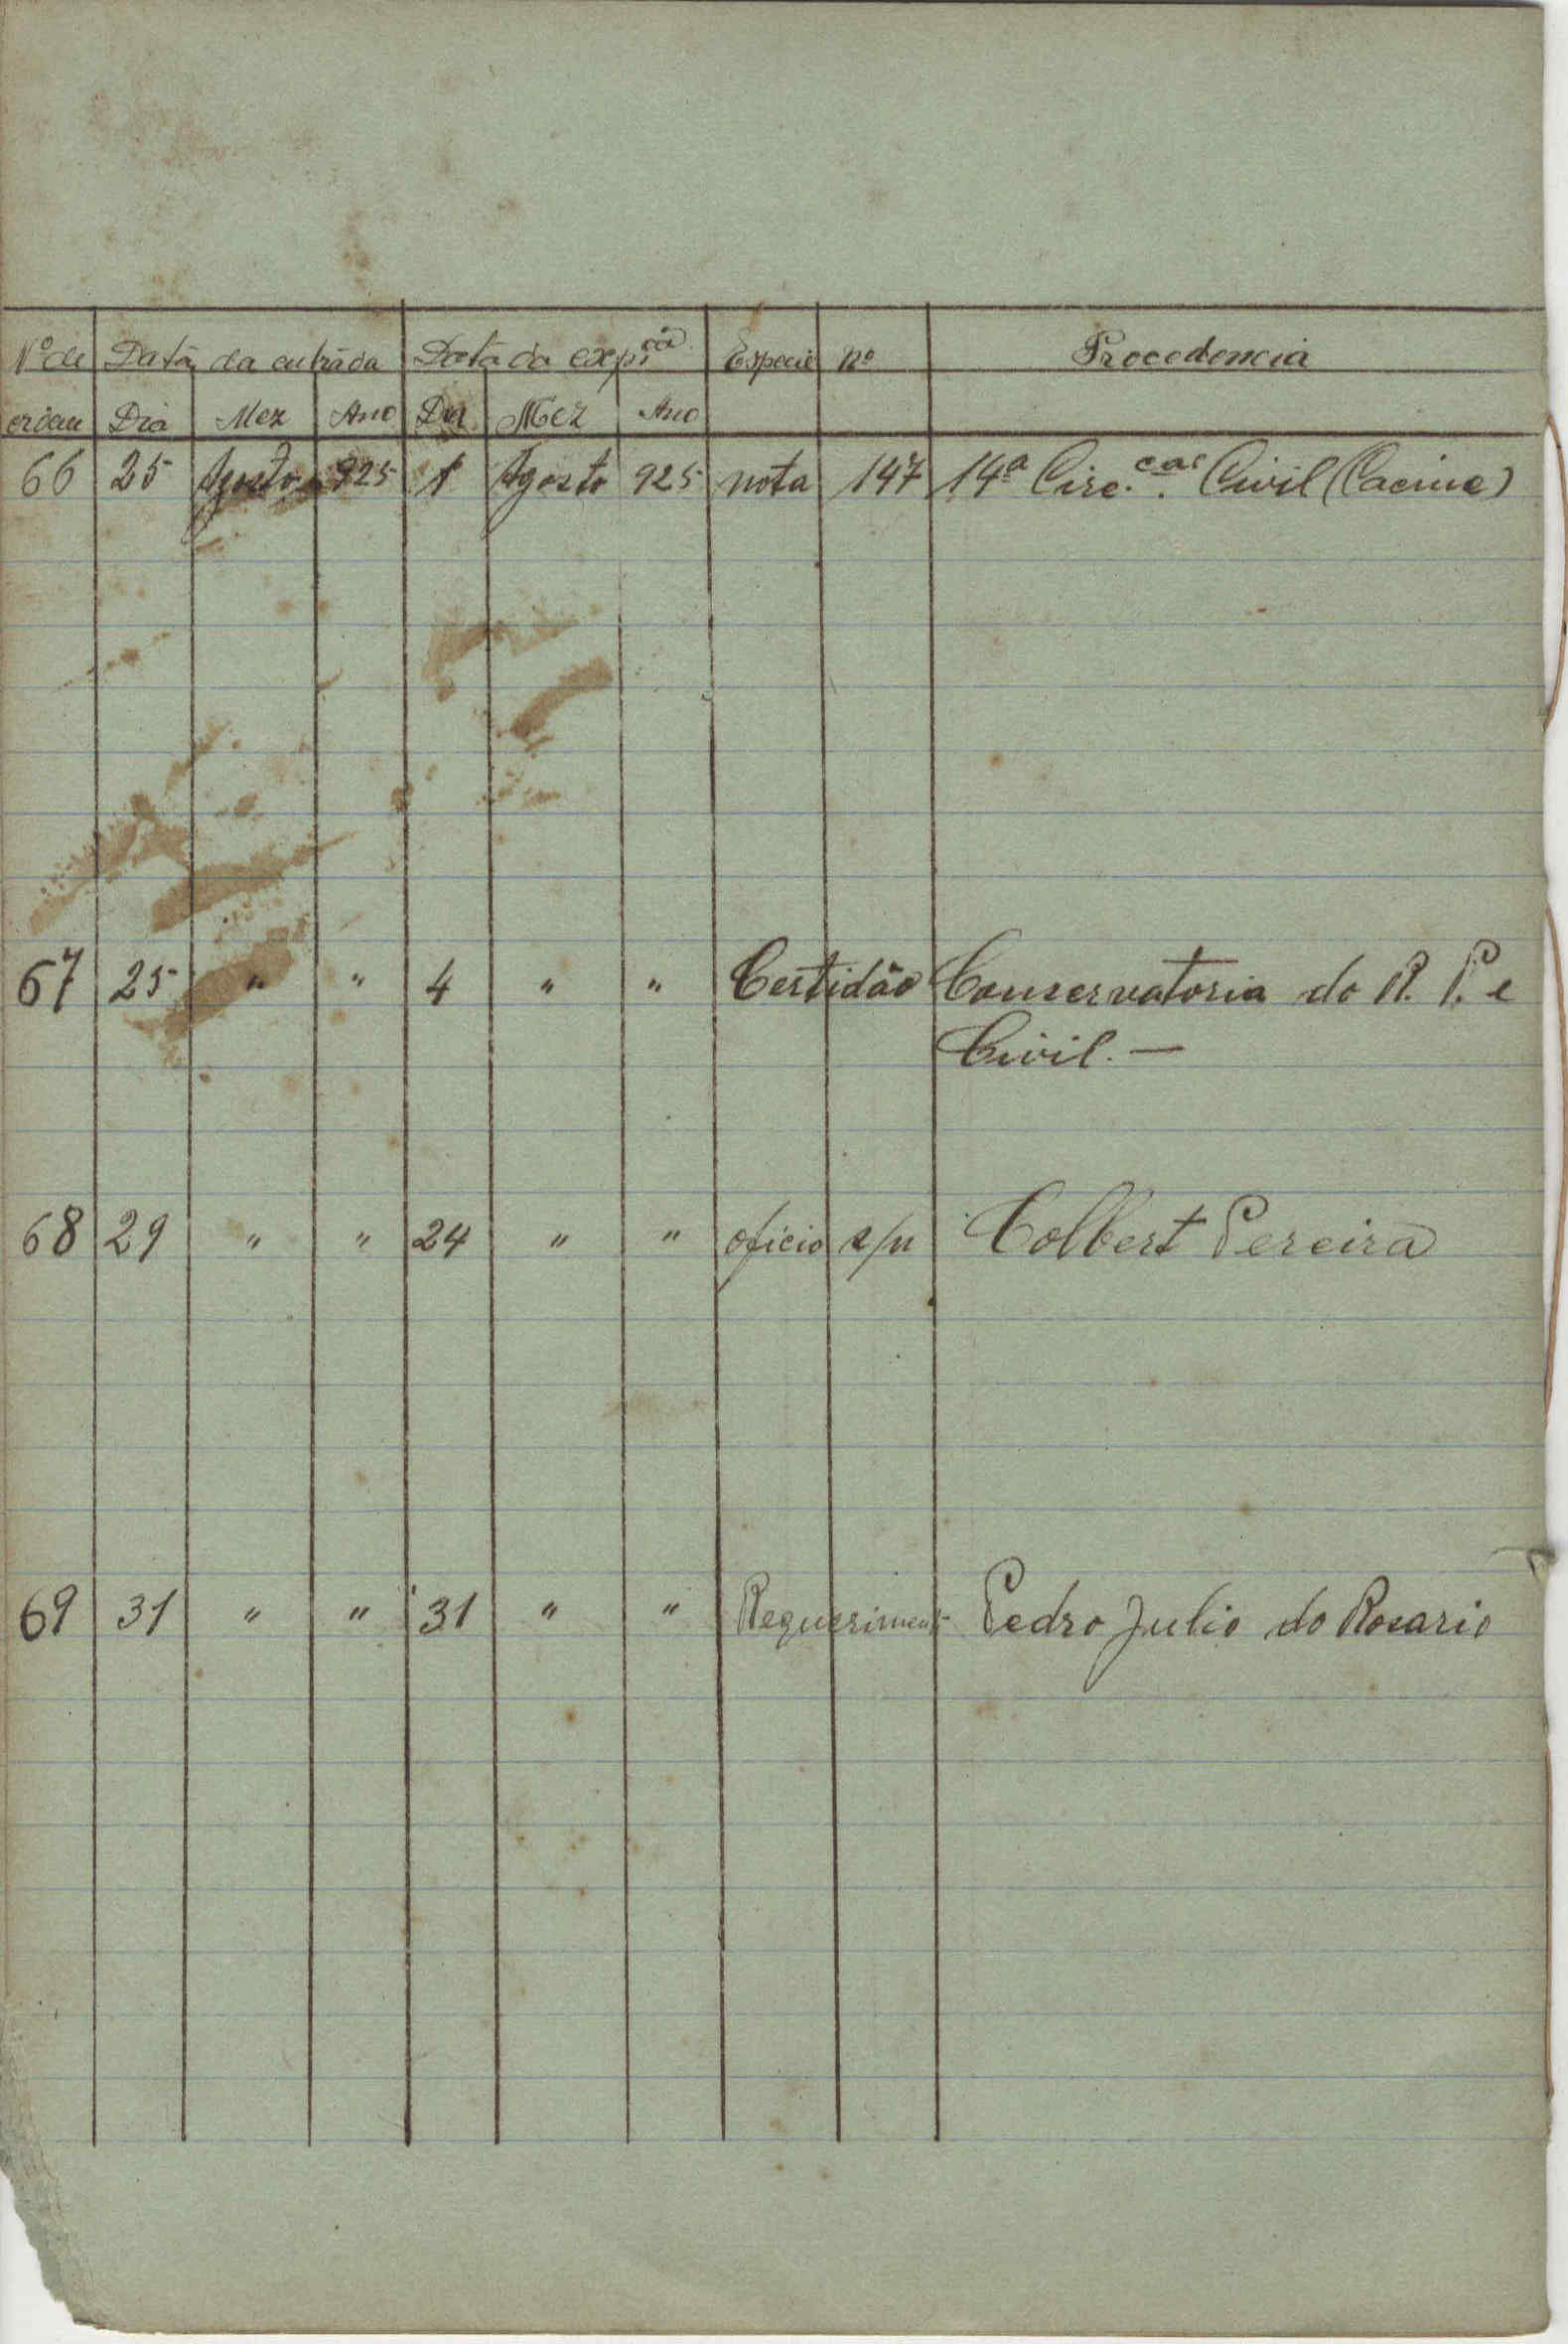 Nº de Data da entrada Data da exp.ção Especie nº Procedencia
ordem Dia Mez Ano Dia Mez Ano
66 25 Agosto 925 1 Agosto 925 nota 147 14ª Circ.cao Civil (Cacine)
67 25 " " 4 " " Certidão Conservatoria do R. P. e
Civil. —
68 29 " " 24 " " oficio s/n Colbert Pereira
69 31 " " 31 " " Requeriment Pedro Julio do Rosario